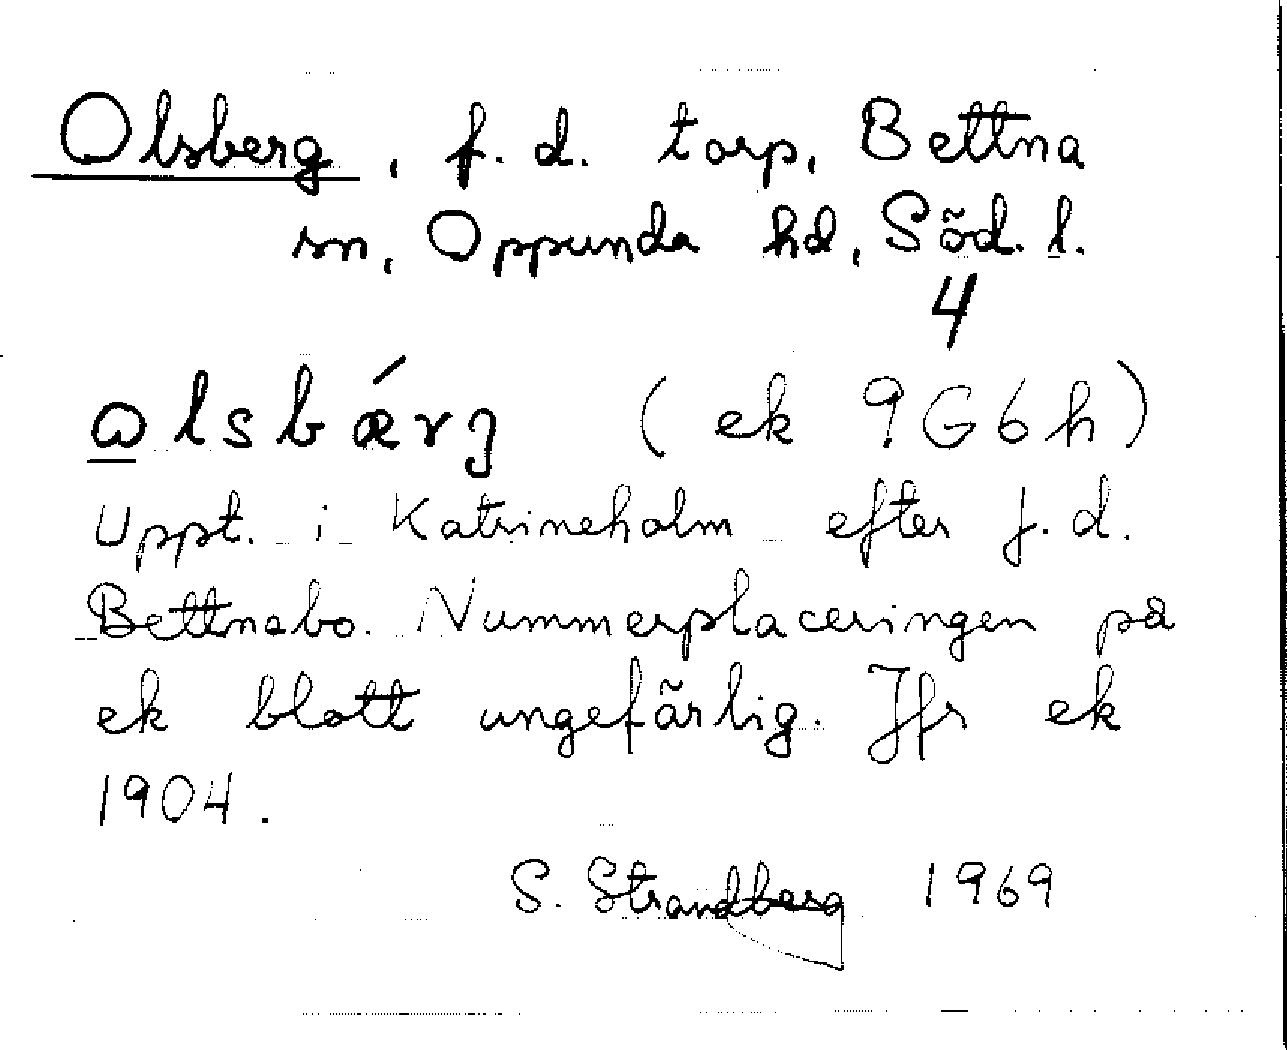 Olsberg, f. d. torp, Bettna
sn, Oppunda hd, Söd. l.
4
ωlsbǽrȷ (ek 9G6h)
Uppt. i Katrineholm efter f. d.
Bettnabo. Nummerplaceringen på
ek blott ungefärlig. Jfr ek
1904.
S. Strandberg 1969